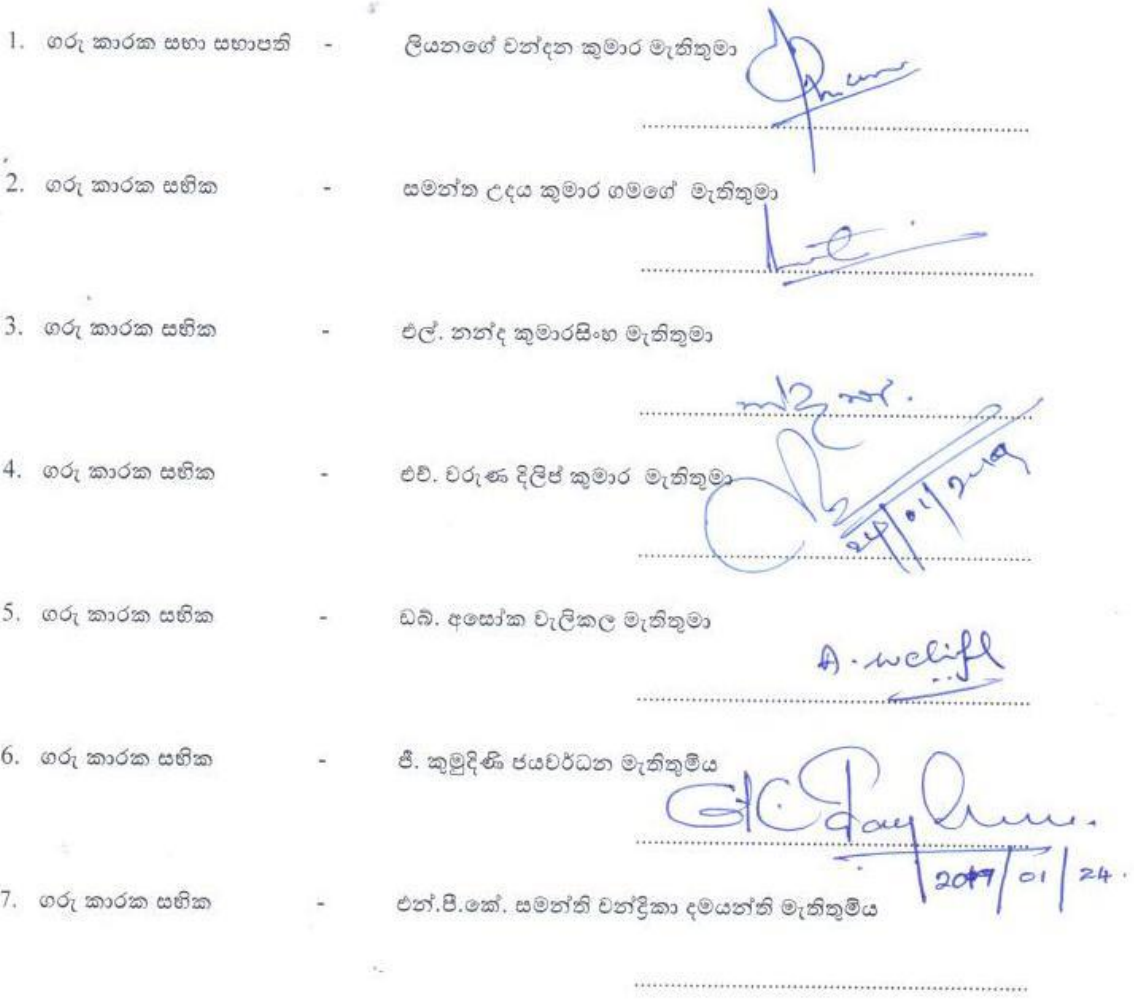 1. ගරු කාරක සභා සභාපති - ලියනගේ චන්දන කුමාර මැතිතුමා
2. ගරු කාරක සභික - සමන්ත උදය කුමාර ගමගේ මැතිතුමා
3. ගරු කාරක සභික - එල්. නන්ද කුමාරසිංහ මැතිතුමා
4. ගරු කාරක සභික - එච්. වරුණ දිලිප් කුමාර මැතිතුමා
24/01/2019
5. ගරු කාරක සභික - ඩබ්. අසෝක වැලිකල මැතිතුමා
6. ගරු කාරක සභික - ජී. කුමුදිණි ජයවර්ධන මැතිතුමිය
2019/01/24.
7. ගරු කාරක සභික - එන්.පී.කේ. සමන්ති චන්ද්‍රිකා දමයන්ති මැතිතුමිය